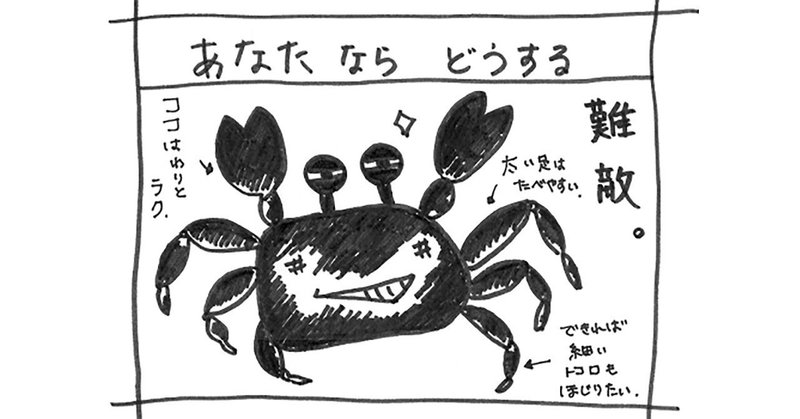 あなたなら どうする
難敵。
太い足は
たべやすい。
ココはわりと
ラク。
できれば
細い
トコロも
ほじりたい。